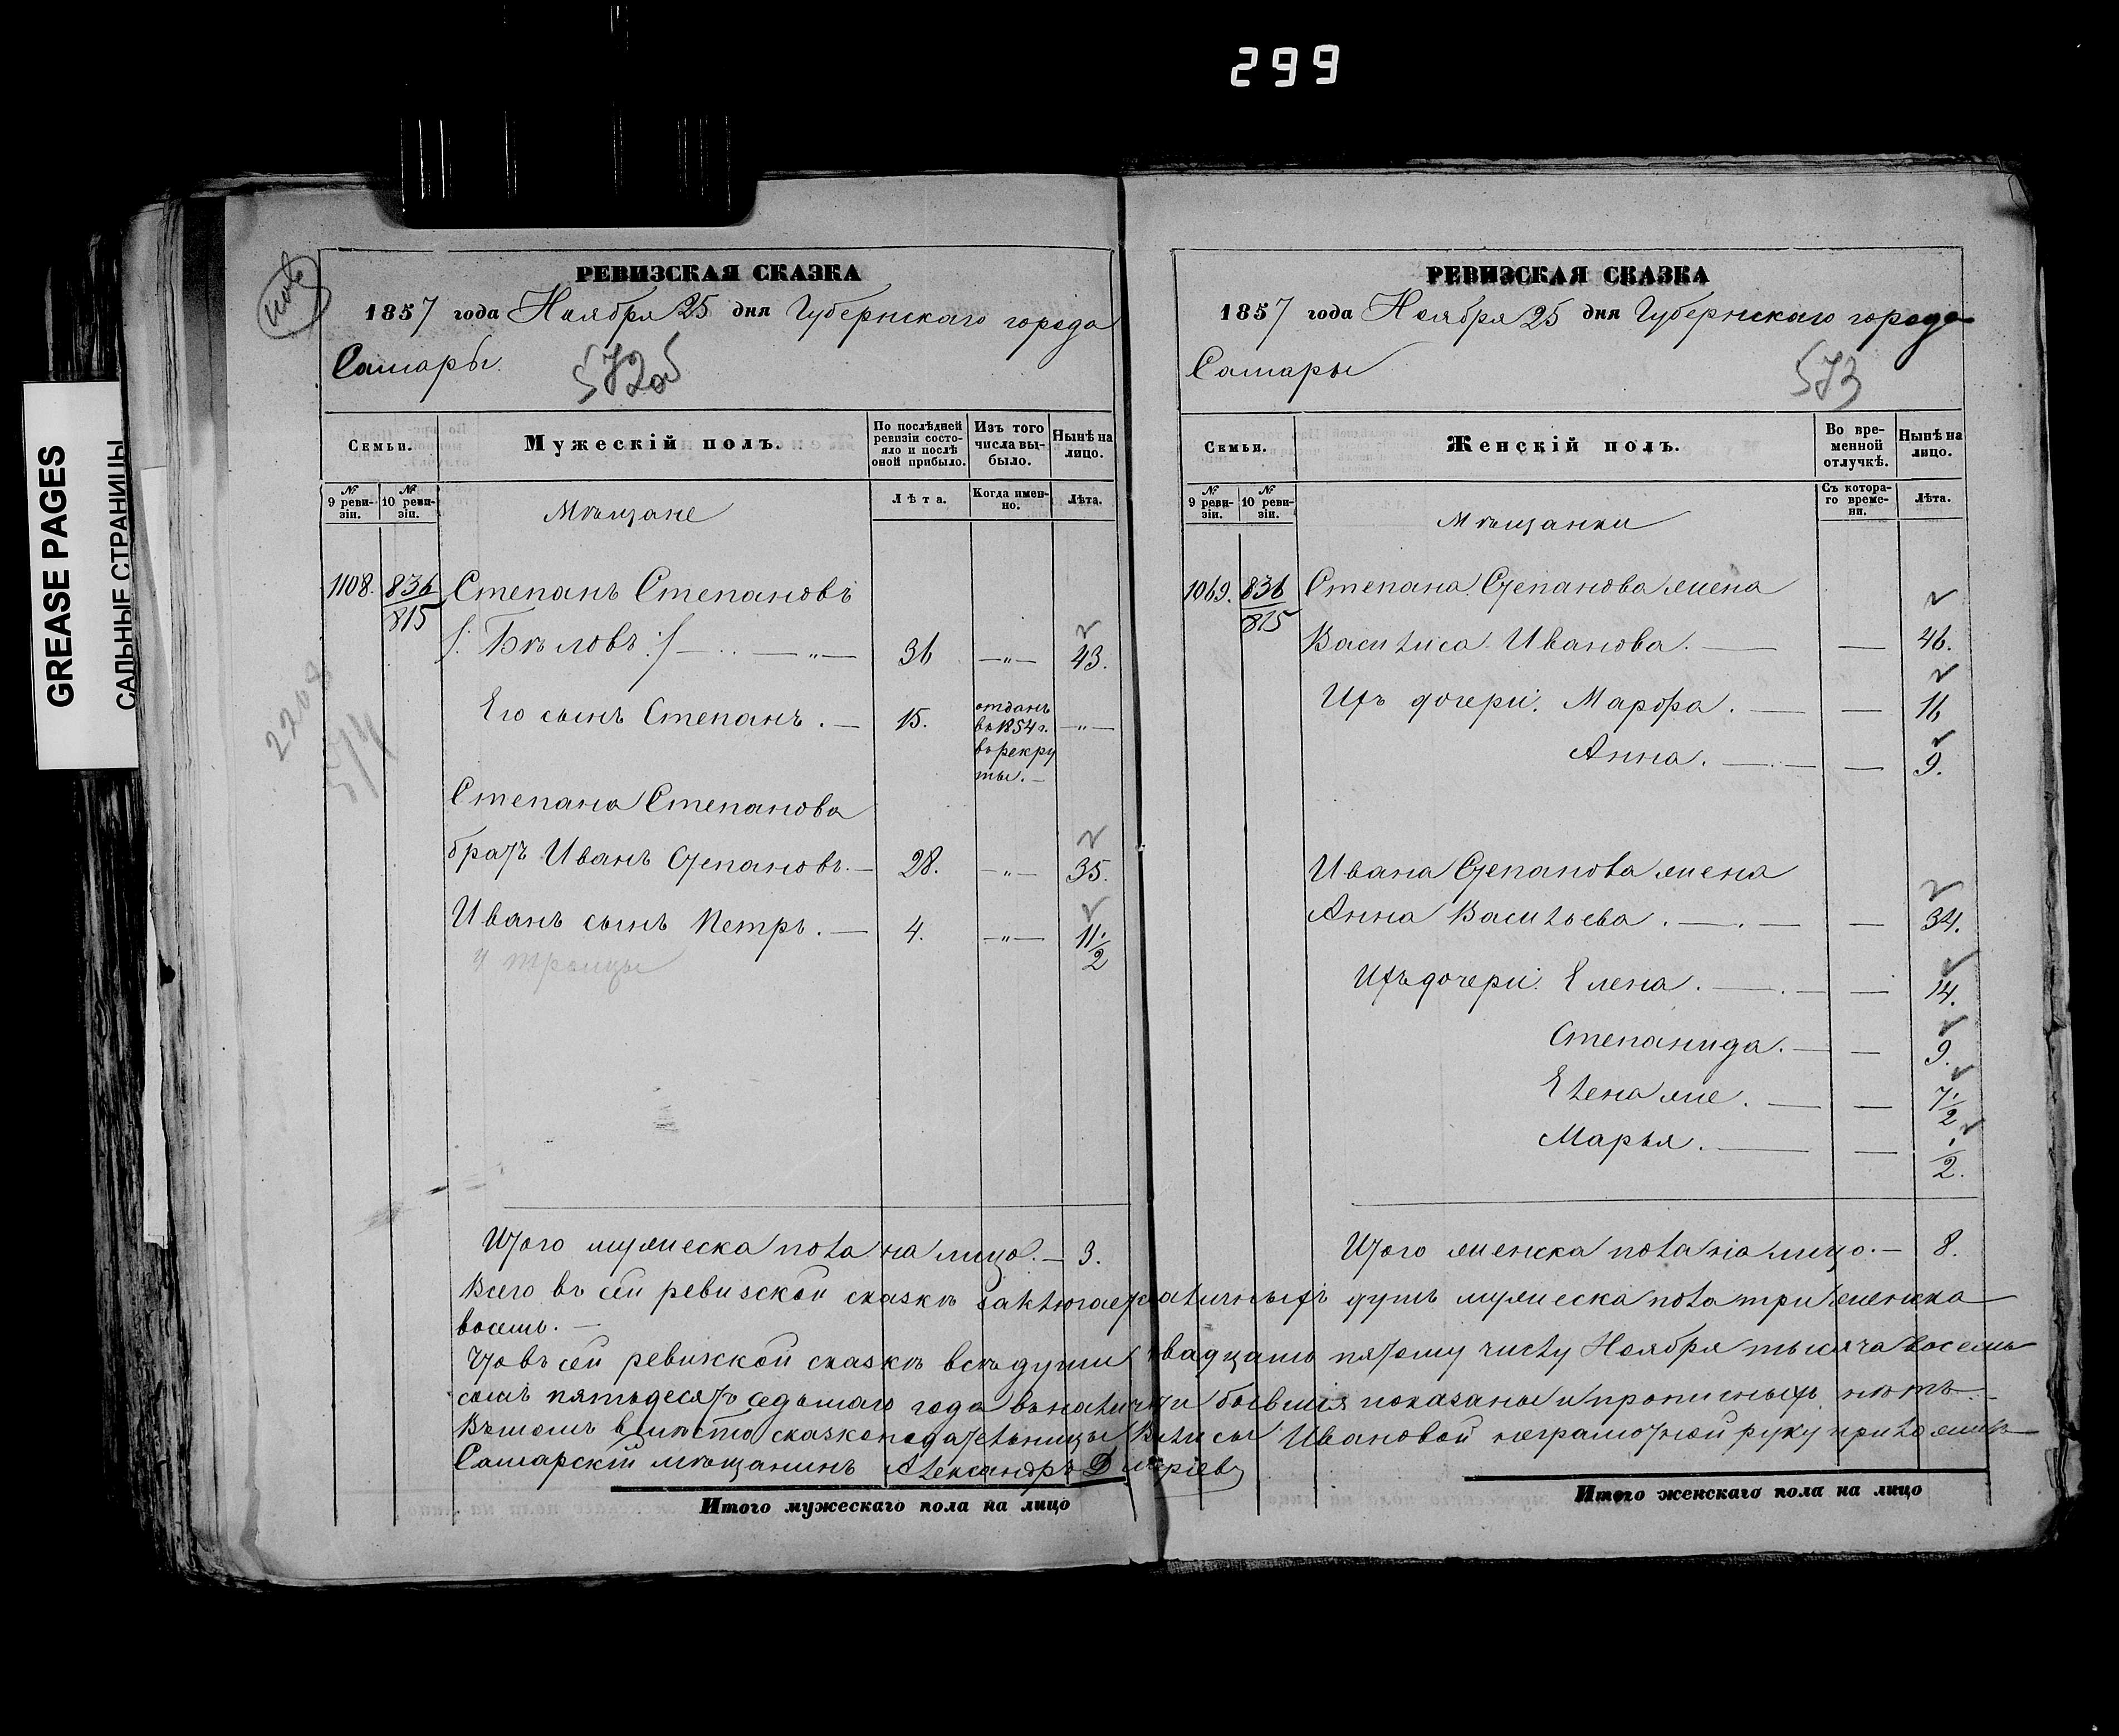 299
GREASE PAGES
САЛЬНЫЕ СТРАНИЦЫ
2208
РЕВИЗСКАЯ СКАЗКА
1857 года Ноября 25 дня Губернскаго города
Самары.
572об
Семьи.
Мужескій полъ.
По послѣдней ревизіи состояло и послѣ оной прибыло.
Изъ того числа выбыло.
Нынѣ на лицо.
№ 9 ревизіи.
№ 10 ревизіи.
Мѣщане
Лѣта.
Когда именно.
Лѣта.
1108. 836 Степанъ Степановъ
815
/: Бѣловъ :/ — 36 —„— 43.
Его сынъ Степанъ. — 15. отданъ въ 1854 г. въ рекруты. — —„—
Степана Степанова
братъ Иванъ Степановъ. — 28. —„— 35.
Иванъ сынъ Петръ. — 4. —„— 11 1/2
Итого мужеска пола на лицо. — 3.
РЕВИЗСКАЯ СКАЗКА
1857 года Ноября 25 дня Губернскаго города
Самары
573
Семьи.
Женскій полъ.
Во временной отлучкѣ.
Нынѣ на лицо.
№ 9 ревизіи.
№ 10 ревизіи.
Мѣщанки
Съ котораго времени.
Лѣта.
1069. 836 Степана Степанова жена
815
Василиса Иванова. — — 46.
Ихъ дочери. Марфа. — — 11
Анна. — — 9.
Ивана Степанова жена
Анна Васильева. — — 34.
Ихъ дочери. Елена. — — 14.
Степанида. — — 9.
Елена же. — — 7 1/2
Марья. — — 1/2.
Итого женска пола на лицо. — 8.
Всего въ сей ревизской сказкѣ заключается наличныхъ душъ мужеска пола три женска
восемь. —
Что въ сей ревизкой сказкѣ всѣ души двадцать пятому числу Ноября тысяча восемь
сотъ пятьдесятъ седьмаго года въ наличии бывшія показаны и прописныхъ нѣтъ. —
Въ томъ вмѣсто сказкоподательницы Вилисы Ивановой неграмотной руку приложилъ
Самарскій мѣщанинъ Александръ
Итого мужескаго пола на лицо
Итого женскаго пола на лицо